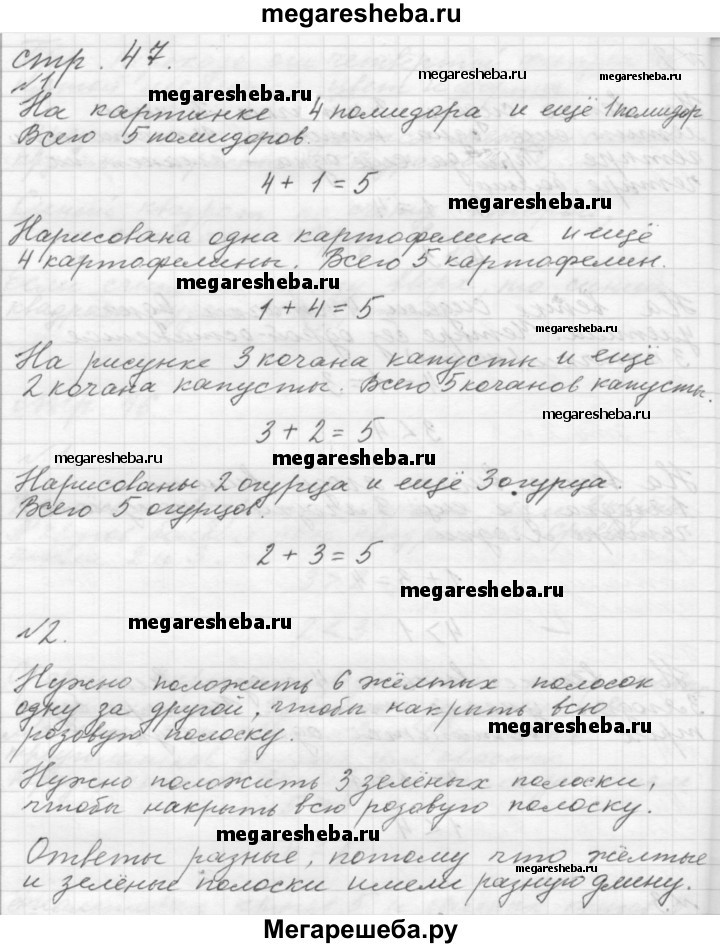 megaresheba.ru
стр. 47.
№1
megaresheba.ru
megaresheba.ru
megaresheba.ru
На картинке 4 помидора и ещё 1 помидор
Всего 5 помидоров.
4 + 1 = 5
megaresheba.ru
Нарисована одна картофелина и ещё
4 картофелины. Всего 5 картофелин.
megaresheba.ru
1 + 4 = 5
megaresheba.ru
На рисунке 3 кочана капусты и ещё
2 кочана капусты. Всего 5 кочанов капусты.
megaresheba.ru
3 + 2 = 5
megaresheba.ru
megaresheba.ru
Нарисованы 2 огурца и ещё 3 огурца.
Всего 5 огурцов.
2 + 3 = 5
megaresheba.ru
№2.
megaresheba.ru
Нужно положить 6 жёлтых полосок
одну за другой, чтобы накрыть всю
розовую полоску.
megaresheba.ru
Нужно положить 3 зелёных полоски,
чтобы накрыть всю розовую полоску.
megaresheba.ru
Ответы разные, потому что жёлтые
и зелёные полоски имели разную длину.
megaresheba.ru
Мегарешеба.ру